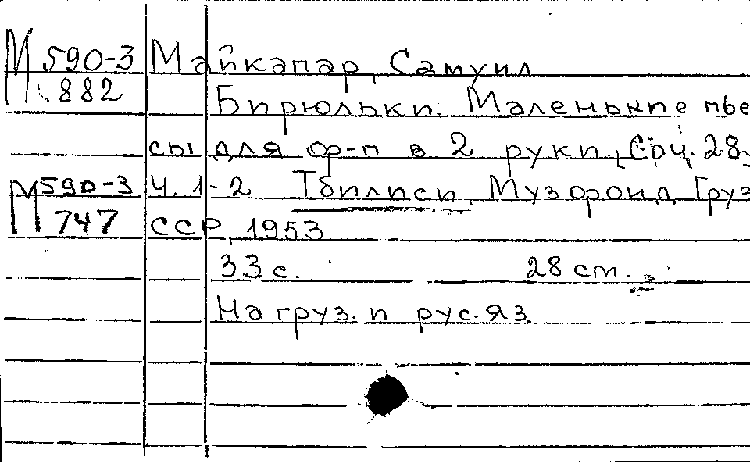 М 590-3 Майкапар, Самуил
882 Бирюльки. Маленькие пье-
сы для ф-п в 2 руки, Соч. 28.
М 590-3 Ч. 1-2 Тбилиси, Музфонд Груз.
747 ССР, 1953
33 с. 28 см.
На груз. и рус. яз